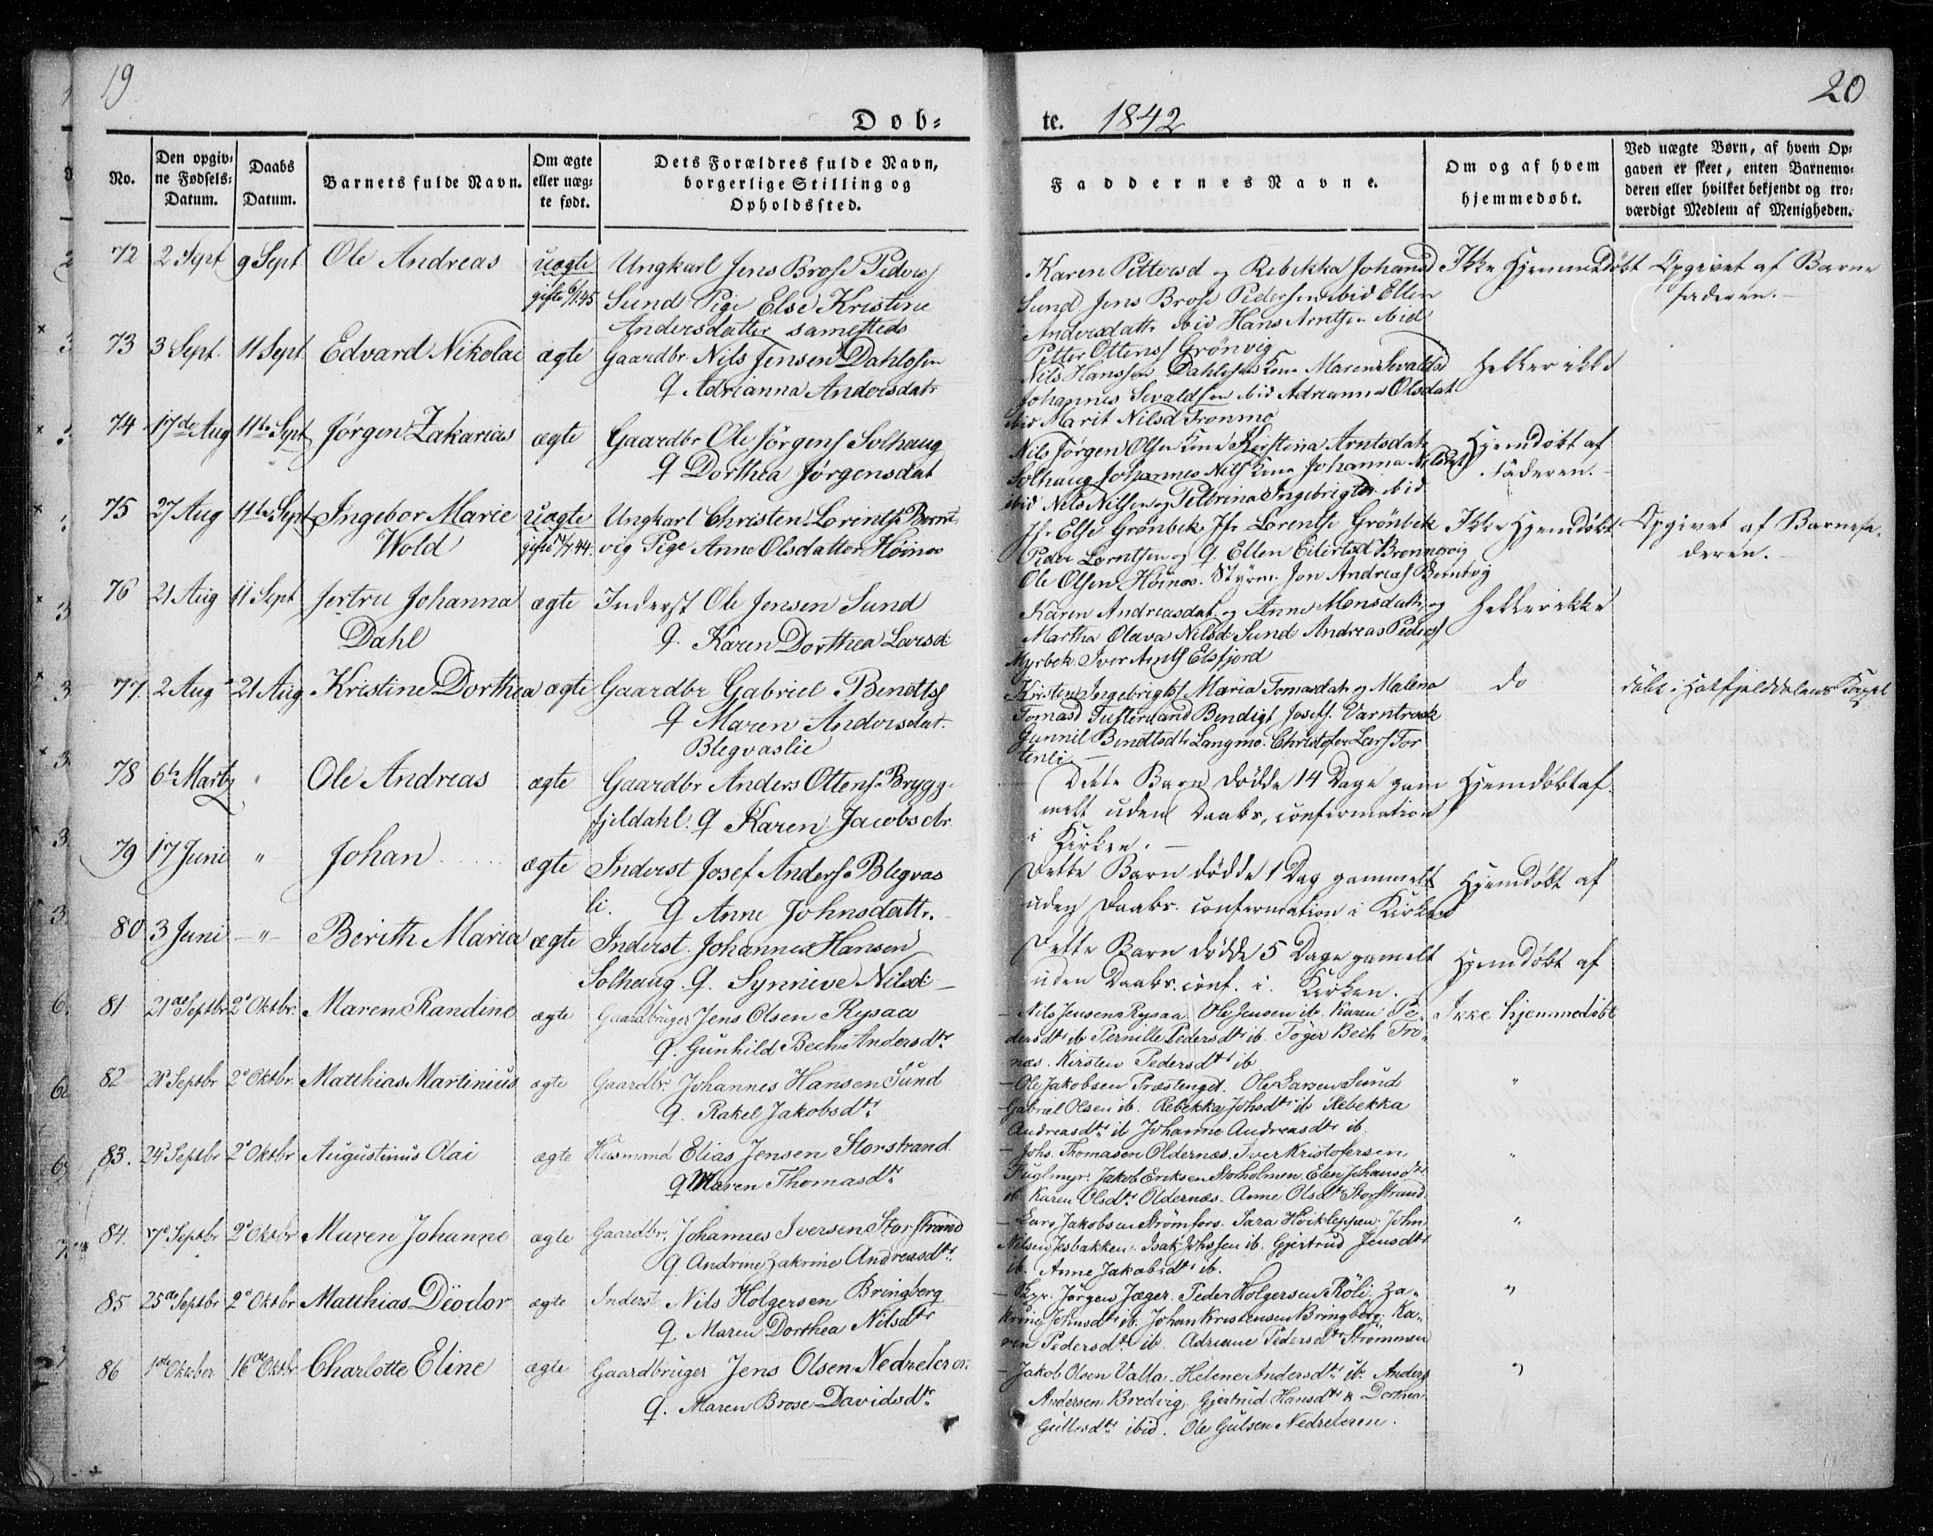 19
20
Døb-
te. 1842
No.
Den opgiv-
ne Fødsels-
Datum.
Daabs
Datum.
Barnets fulde Navn.
Om ægte
eller uæg-
te født.
Dets Forældres fulde Navn,
borgerlige Stilling og
Opholdssted.
Faddernes Navne.
Om og af hvem
hjemmedøbt.
Ved uægte Børn, af hvem Op-
gaven er skeet, enten Barnemo-
deren eller hvilket bekjendt og tro-
værdigt Medlem af Menigheden.
72 2 Sept 9 Sept Ole Andreas uægte Ungkarl Jens Brose Peders
Sund Pige Else Kristine
Andersdatter samesteds
Karen Pettersd og Rebekka Johansd
Sund Jens Brose Pedersen ibid Ellen
Andersdatr ibid Hans Arntsen ibid
Petter Ottens Grönvig
Ikke Hjemmedøbt
Opgivet af Barne
faderen.
73 3 Sept. 11 Sept Edvard Nikolai ægte Gaardbr. Nils Jensen Dahlosen
Q Adrianna Andersdatr
Nils Hanssen Dahlosen Kone Maren Sevaldsd
Johannes Sevaldsen ibid Adrianna Olsdat
ibid Marit Nilsd Fronmo
Heller ikke
74 17de Aug 11te Sept Jørgen Zakarias ægte Gaardbr Ole Jørgens Solhaug
Q Dorthea Jørgensdat
Nils Jørgen Olsen Kone Kirstina Arntsdatr
Solhaug Johannes Nils Kone Johanna Nilsdat
ibid Nils Nilsen og Pelbrina Ingebrigtsd ibid
Hjemdøbt af
Faderen.
75 27 Aug 11te Sept Ingebor Marie
Wold
uægte Ungkarl Christen Lorents Bernt
vig Pige Anne Olsdatter Höines
Jfr. Else Grönbek Jfr Lorentse Grönbek
Peder Lorntsen og Q. Ellen Eilertsd Brennesvig
Ole Olsen Höines. Styrm. Jon Andreas Berntvig
Ikke Hjemdøbt
Opgivet af Barnefa-
deren.
76 21 Aug 11 Sept Jertru Johanna
Dahl
ægte Inderst Ole Jensen Sund
Q. Karen Dorthea Larsd
Karen Andreasdat og Anne Monsdatr og
Martha Olava Nilsd Sund Andreas Peders
Myrbek Iver Arnts Elsfjord
Heller ikke
77. 2 Aug 21 Aug. Kristine Dorthea ægte Gaardbr Gabriel Bendts
Q Maren Andersdat.
Blegvaslie
Kristen Ingebrigts Maria Tomasdat og Malena
Tomasd Tusterud and Bendigt Josefs. Varntresk
Gunnil Bendtsdtr Langmo. Christofer Lars Tor
tenli
do
døbt i Hatfjelddalens Capel
78 6te Marts " Ole Andreas ægte Gaardbr Anders Ottens Brygg-
fjeldahl. Q Karen Jacobsdtr.
Dette Barn døde 14 Dage gam
melt uden Daabs, confirmation
i Kirken.
Hjemdøbt af
79 17 Juni " Johan ægte Inderst Josef Anders Blegvas
li. Q Anne Johnsdattr.
Dette Barn døde 1 Dag gammelt
uden Daabs. confermation i Kirken
Hjemdøbt af
80 3 Juni " Berith Maria ægte Inderst. Johannes Hansen
Solhaug. Q. Synnive Nilsd
Dette Barn døde 5 Dage gamelt
uden Daabs. conf. i Kirken.
Hjemdøbt af
81 21de Septbr 2d Oktbr. Maren Randine ægte Gaardbruger Jens Olsen Rysaa
Q. Gunhild Bech Andersdtr
Nils Jensen Rysaa. Ole Jensen ib. Karen Pe-
dersdtr ib Pernille Pedersdtr ib. Töger Bech Tro-
næs. Kirsten Pedersdtr ib
Ikke hjemmedøbt
82 Septbr 2d Oktbr. Matthias Martinius ægte Gaardbr. Johannes Hansen Sund
Q. Rakel Jakobsdtr
Ole Jakobsen Præsteng̣et. Ole Larsen Sund
Gabriel Olsen ib. Rebekka Johsdtr ib Rebekka
Andreasdtr ib Johanne Andreasdtr ib.
"
83. 24d Septbr 2d Oktbr Augustinus Olai ægte Husmand Elias Jensen Storstrand
Q Maren Thomasdtr
Johs. Thomasen Oldernæs. Iver Kristofersen
Fuglmyr. Jakob Eriksen Storholmen Elen Johansdtr
ib Karen Olsdtr Oldernæs. Anne Olsdtr Storstrand.
"
84. 7d Septbr 2d Oktbr Maren Johanne ægte Gaardbr. Johannes Iversen Storstrand
Q. Andrine Zakrine Andreasdtr
Lars Jakobsen Strømfors. Sara Höikleppen. John
Nilsen Jesbakken. Isak Johssen ib. Gjertrud Jensdtr
ib. Anne Jakobsdtr ib.
"
85 25de Septbr 2d Oktbr Matthias Diodor ægte Inderst Nils Holgersen Bringberg
Q. Maren Dorthea Nilsdtr
Jørgen Jæger. Peder Holgersen Röli. Za-
krine Johnsdtr ib. Johan Kristensen Bringberg. Ka-
ren Pedersdtr ib. Adriane Pedersdtr Strømmen
"
86 1ste Oktober 16de Oktbr Charlotte Eline ægte Gaardbruger Jens Olsen Nedreleren
Q. Maren Brose Davidsdtr
Jakob Olsen Valla. Helene Andersdtr ib. Anders
Andersen Bredvig. Gjertrud Hansdtr & Dorthea
Gullesdtr ibid. Ole Gulsen Nedreleren.
"